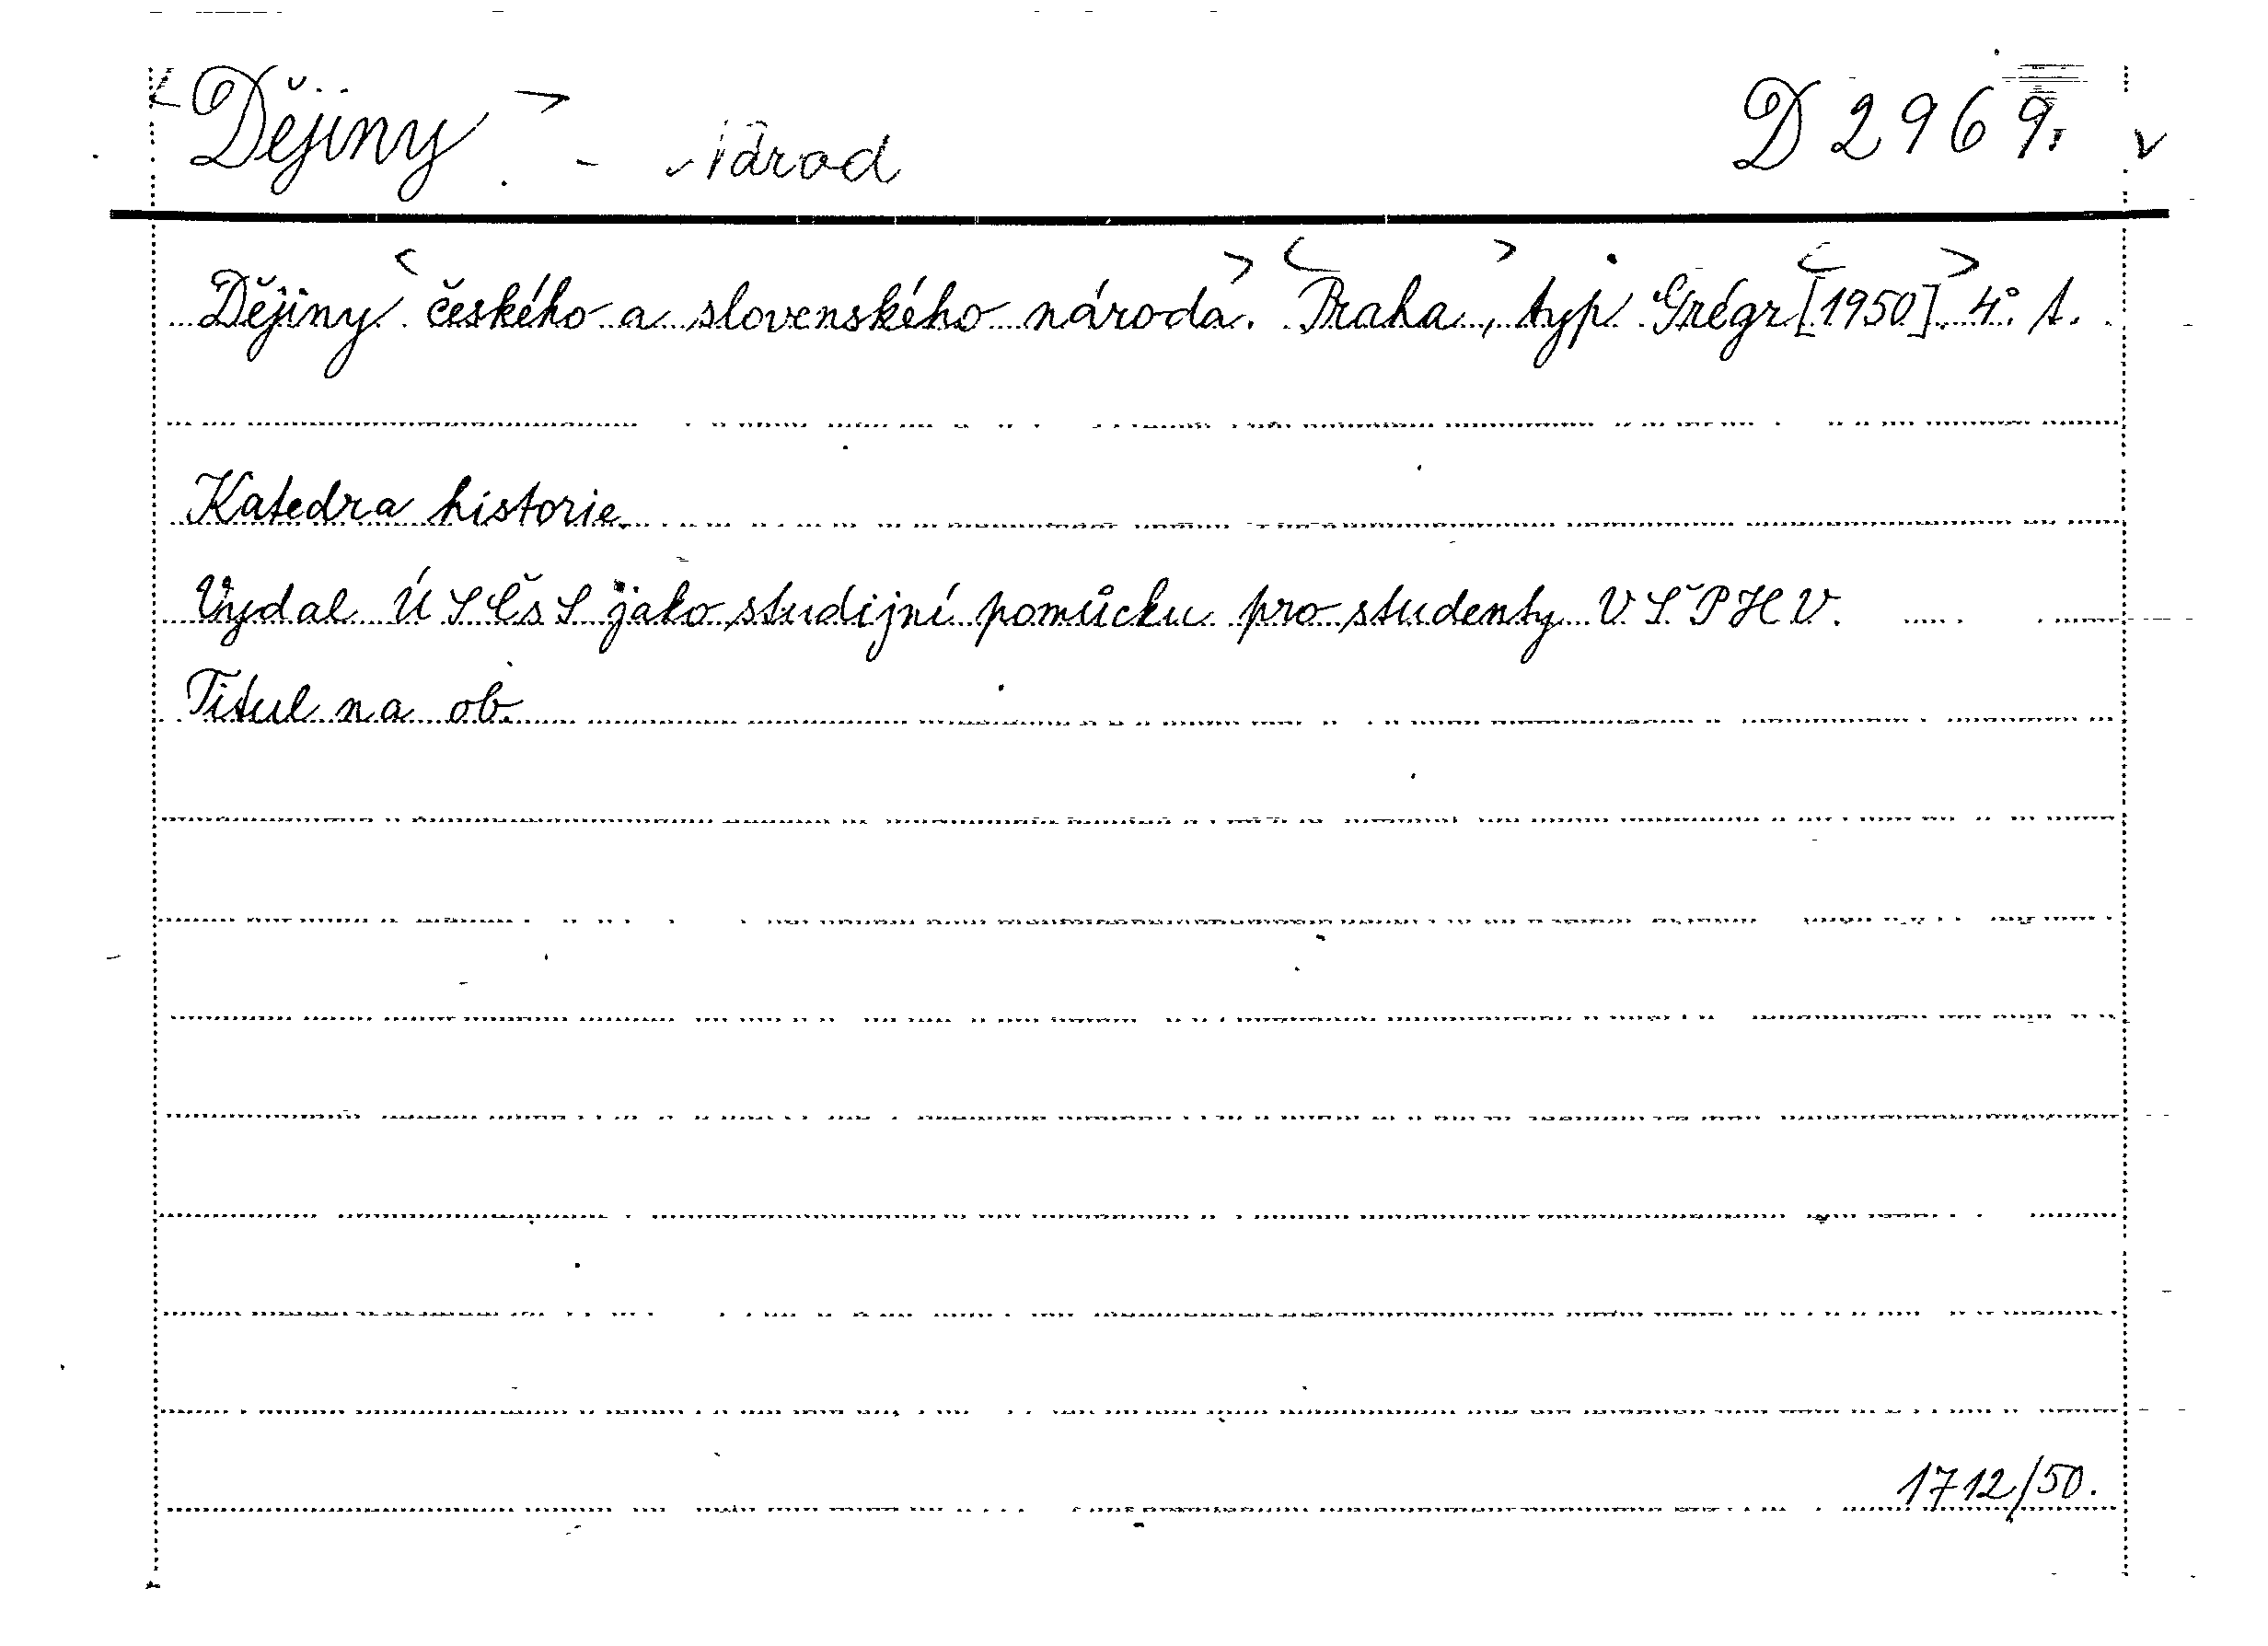 <Dějiny> - národ D 2969. v
Dějiny <českého a slovenského národa>. <Praha>, typ. Grégr <[1950]>. 4° 1.
Katedra historie.
Vydal ÚSČsS jako studijní pomůcku pro studenty VŠPHV.
Titul na ob.
1712/50.